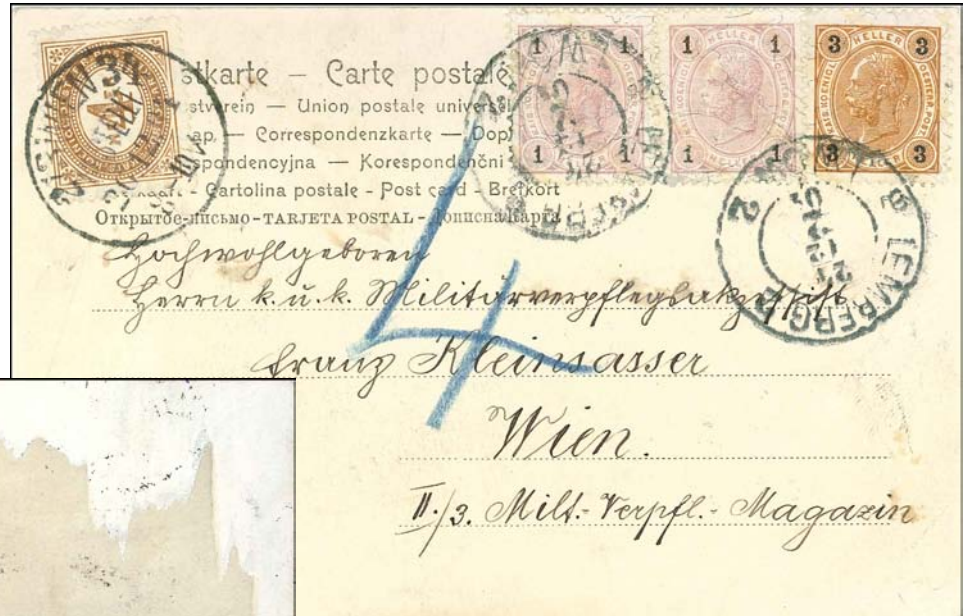 1 1 1 1 3 3
HELLER HELLER
1 1 1 1 3 3
4
stkarte – Carte postale
stverein — Union postale universel
ap. — Correspondenzkarte — Dop
spondencyjna — Korespondenční
- Cartolina postale - Post card - Brefkort
Открытое-письмо - TARJETA POSTAL - Дописна карта
WIEN
LEMBERG
LEMBERG 2
4
Hochwohlgeboren
Herrn k. u. k. Militärverpflegsakzessist
Franz Kleinsasser
Wien.
II./3. Milt.-Verpfl.-Magazin